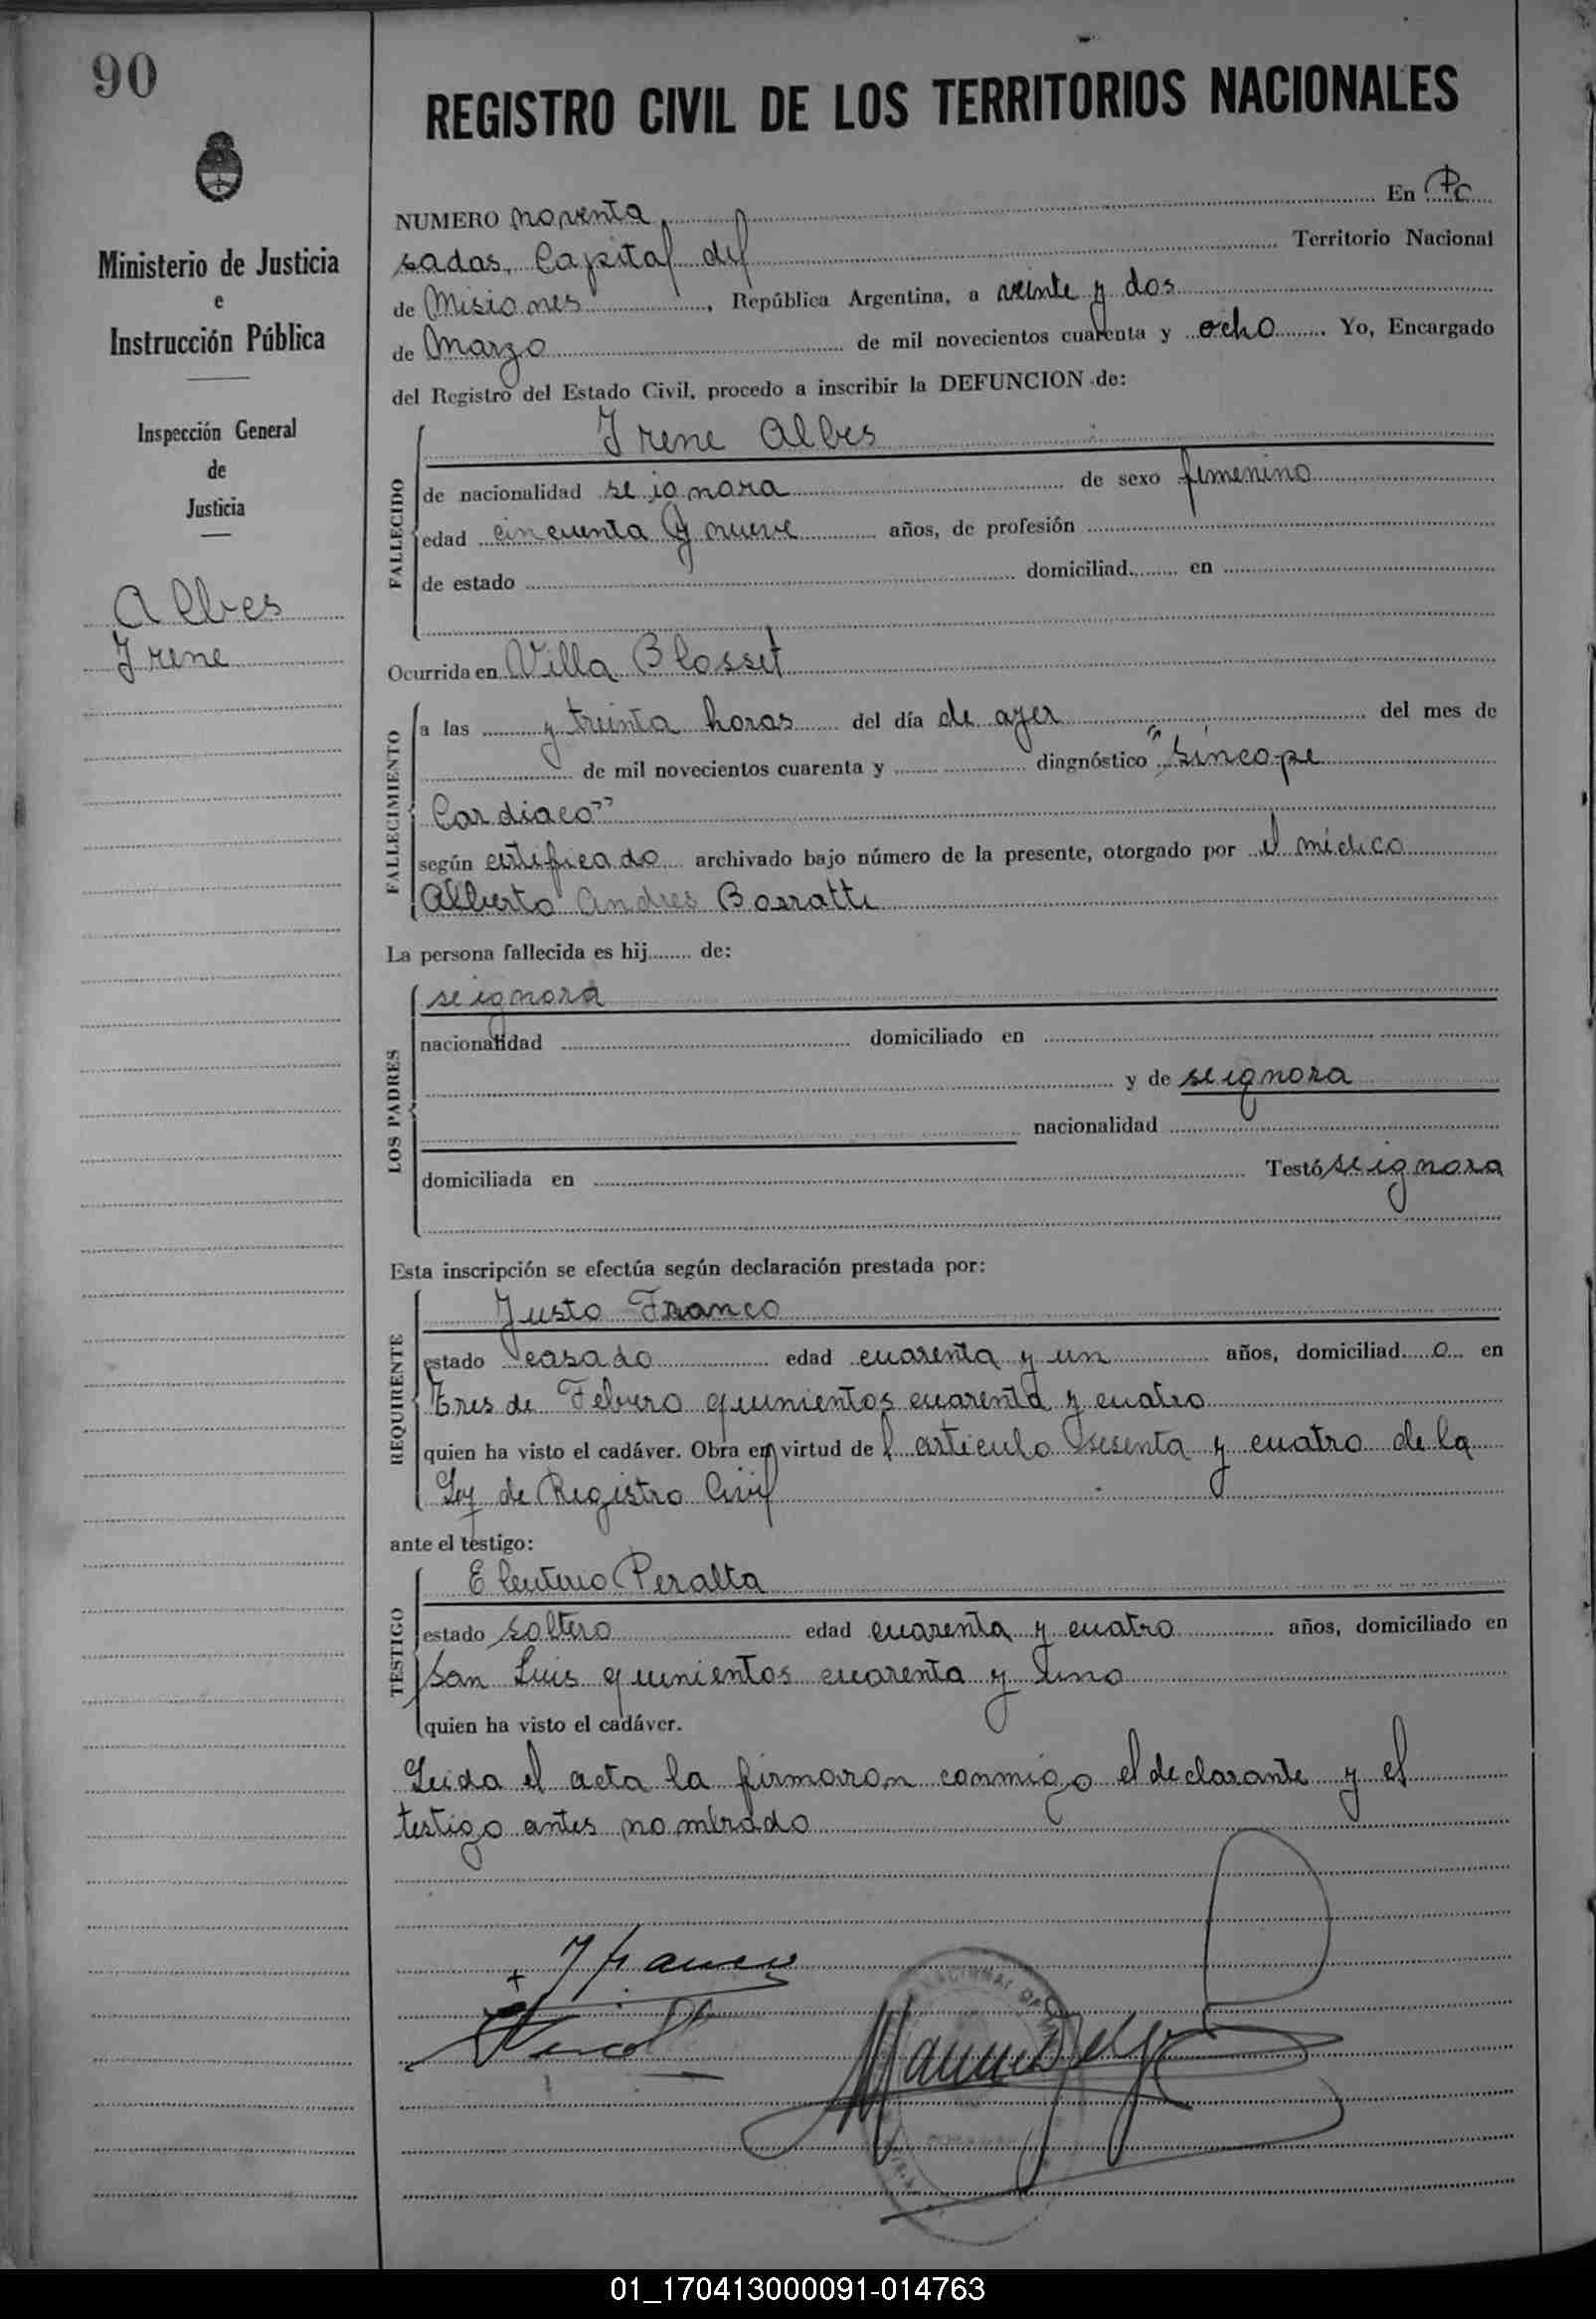 90
REGISTRO CIVIL DE LOS TERRITORIOS NACIONALES
Ministerio de Justicia
e
Instrucción Pública
Inspección General
de
Justicia
Albes
Irene
NUMERO noventa En Po
sadas, Capital del Territorio Nacional
de Misiones, República Argentina, a veinte y dos
de Marzo de mil novecientos cuarenta y ocho Yo, Encargado
del Registro del Estado Civil, procedo a inscribir la DEFUNCION de:
FALLECIDO
Irene Albes
de nacionalidad se ignora de sexo femenino
edad cincuenta y nueve años, de profesión
de estado domiciliad en
Ocurrida en Villa Blosset
FALLECIMIENTO
a las y treinta horas del día de ayer del mes de
de mil novecientos cuarenta y diagnóstico "Síncope
Cardiaco"
según certificado archivado bajo número de la presente, otorgado por el médico
Alberto Andres
La persona fallecida es hij de:
LOS PADRES
se ignora
nacionalidad domiciliado en
y de se ignora
nacionalidad
domiciliada en Testó se ignora
Esta inscripción se efectúa según declaración prestada por:
REQUIRENTE
Justo Franco
estado casado edad cuarenta y un años, domiciliad o en
Tres de Febrero quinientos cuarenta y cuatro
quien ha visto el cadáver. Obra en virtud de l articulo sesenta y cuatro de la
Ley de Registro Civil
ante el testigo:
TESTIGO
Eleuterio Peralta
estado soltero edad cuarenta y cuatro años, domiciliado en
San Luis quinientos cuarenta y uno
quien ha visto el cadáver.
Leida el acta la firmaron conmigo el declarante y el
testigo antes nombrado
J Franco
01_170413000091-014763